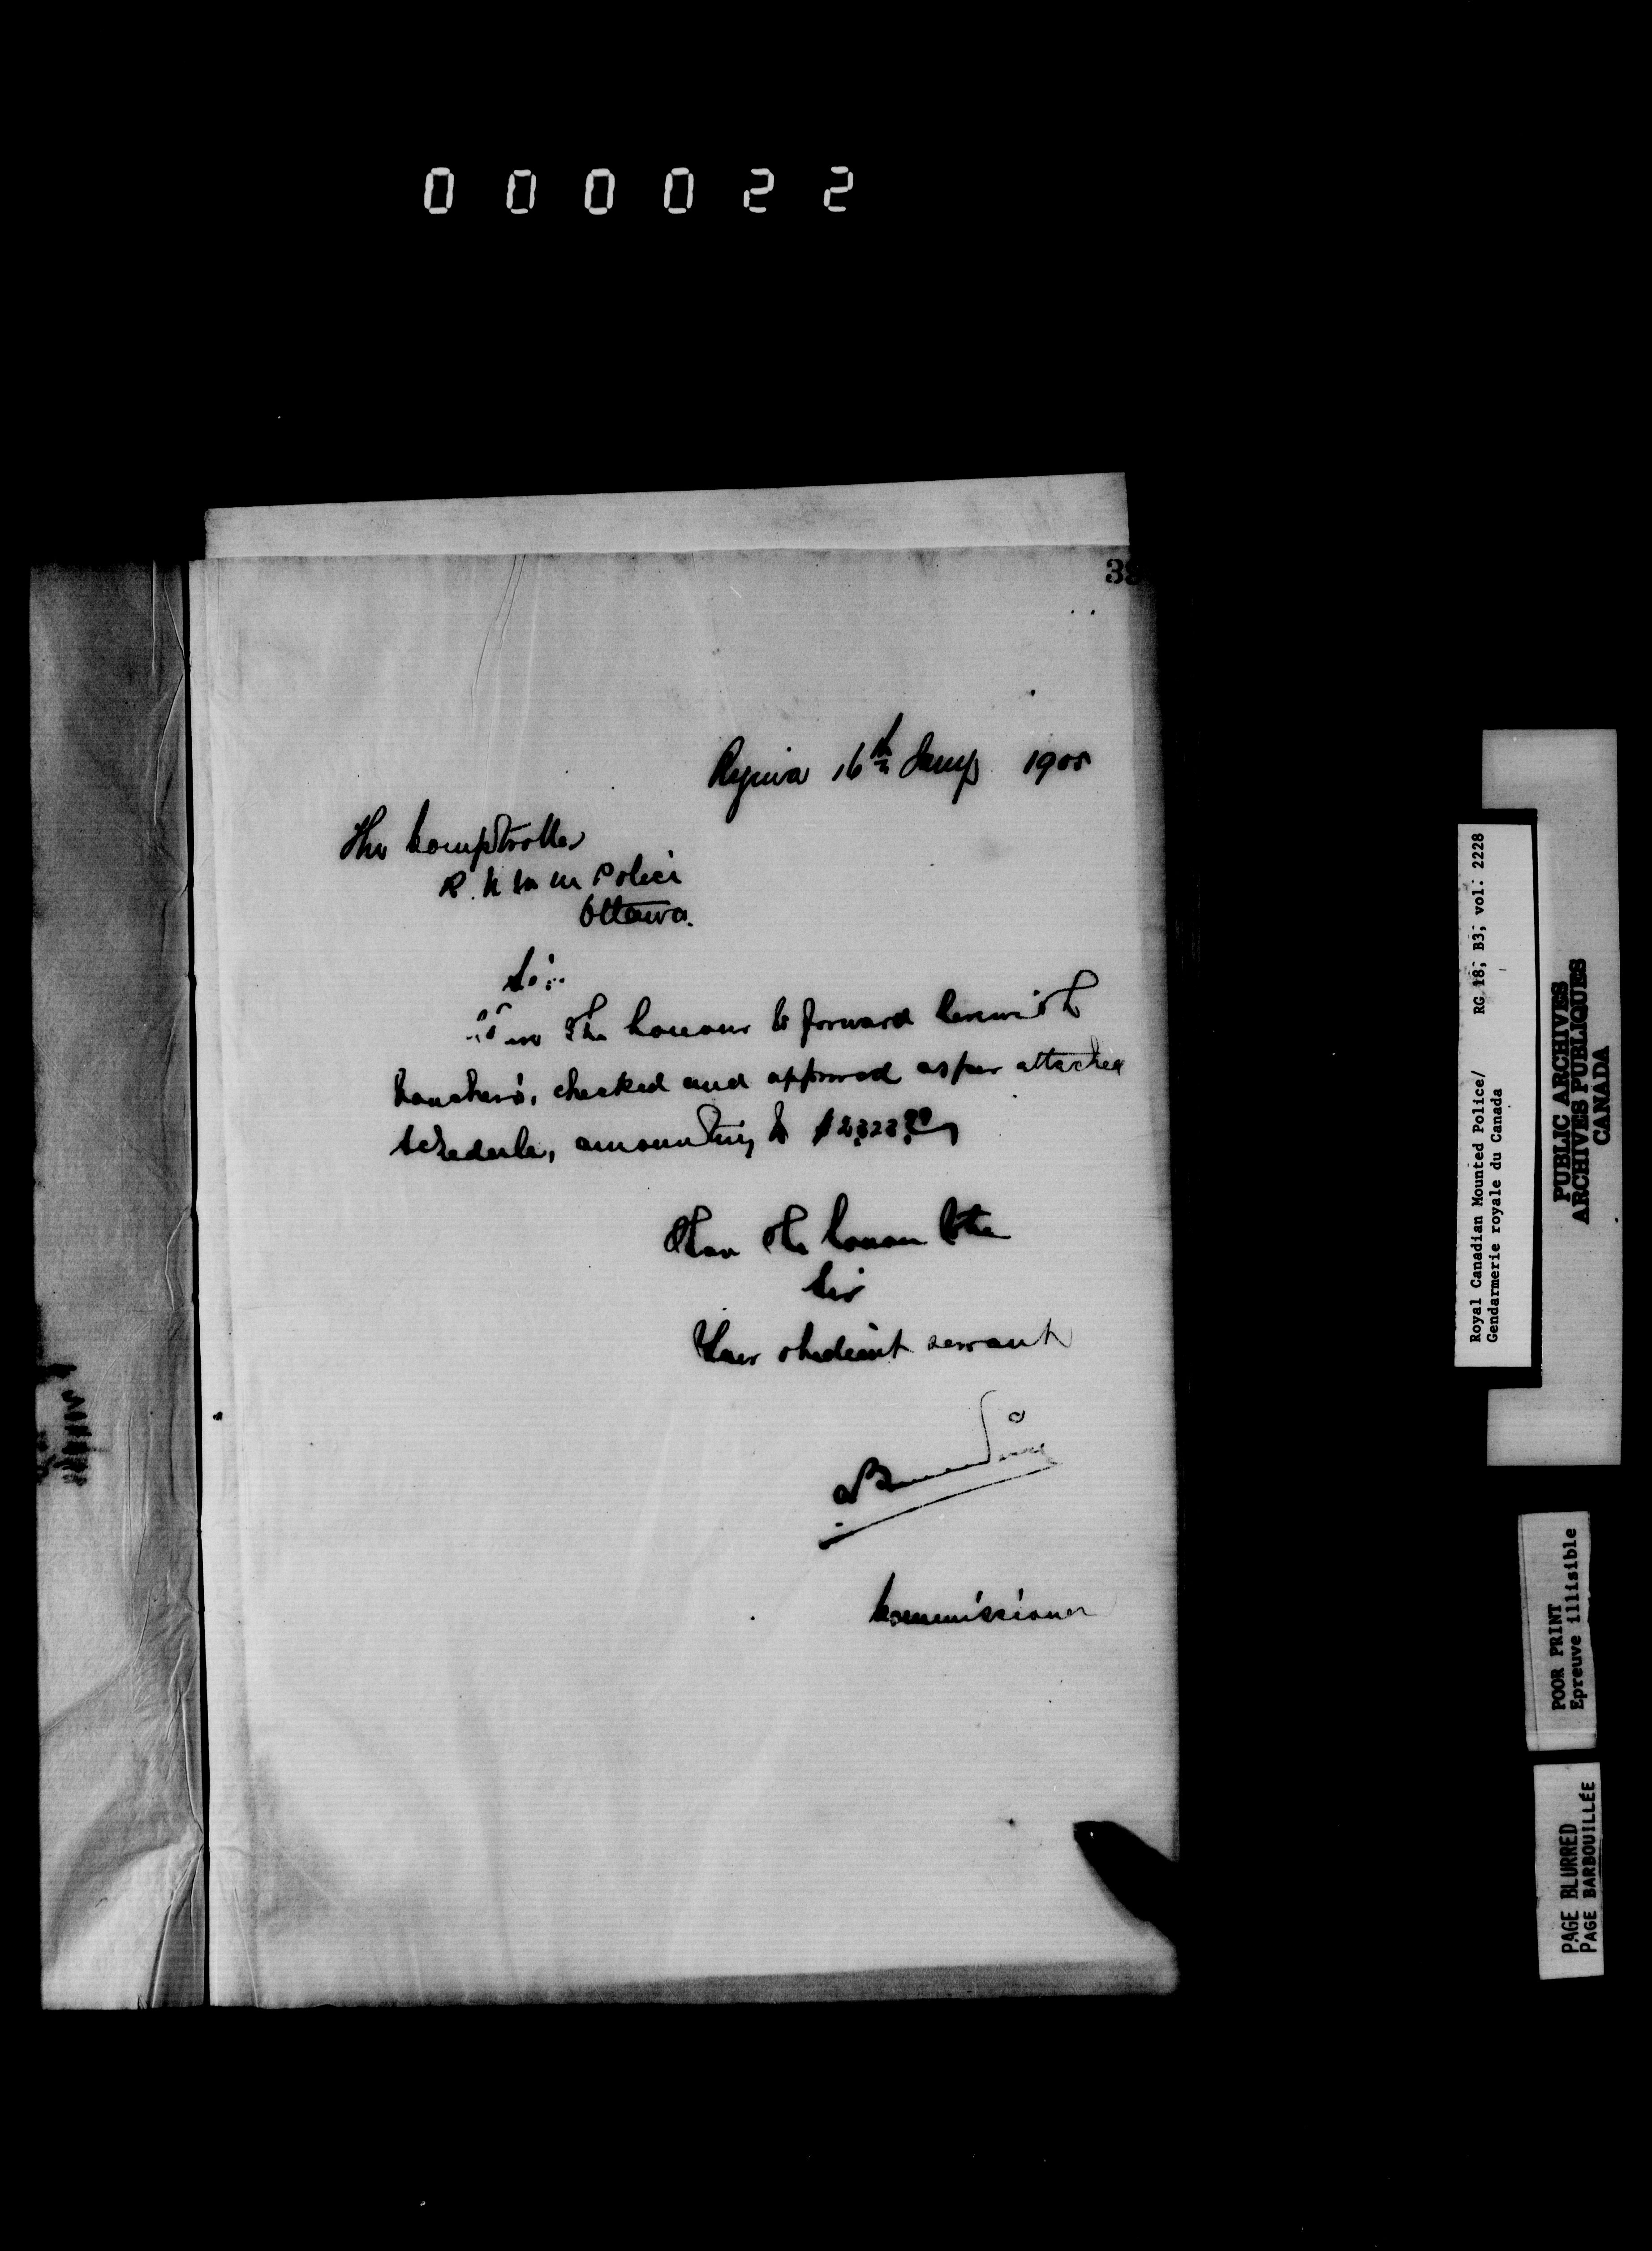 000022
38
Regina 16th Jany 1905
The Comptroller
R. N. W. M Police
Ottawa.
Sir:
the honour to forward herewith
Vouchers, checked and approved as per attached
schedule, amounting to
I have the honour to be
Sir
Your obedient servant
Commissioner
Royal Canadian Mounted Police/ RG 18; B3; vol. 2228
Gendarmerie royale du Canada
PUBLIC ARCHIVES
ARCHIVES PUBLIQUES
CANADA
POOR PRINT
Epreuve illisible
PAGE BLURRED
PAGE BARBOUILLÉE